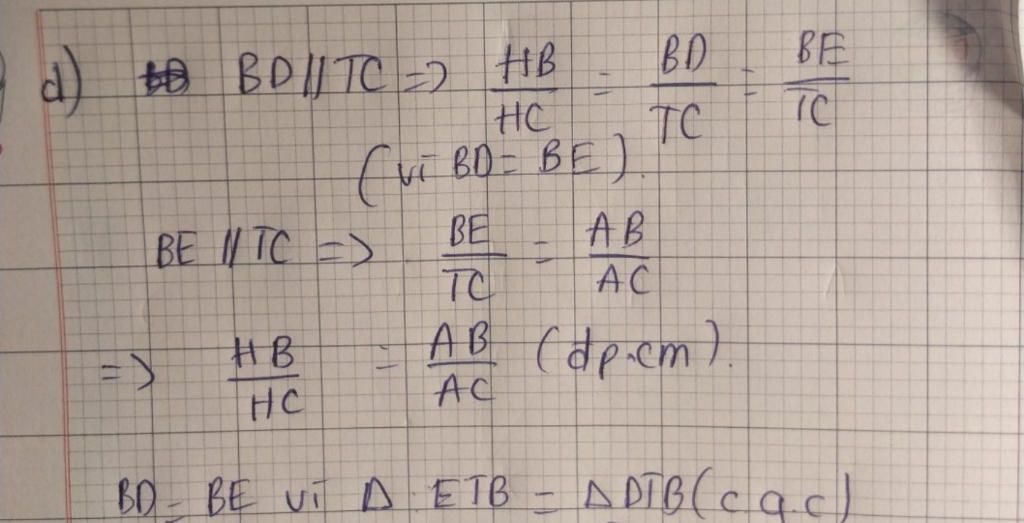 d) BD // TC => HB/HC = BD/TC = BE/TC
(vì BD = BE).
BE // TC => BE/TC = AB/AC
=> HB/HC = AB/AC (đp.cm).
BD = BE vì Δ ETB = Δ DTB (c.g.c)